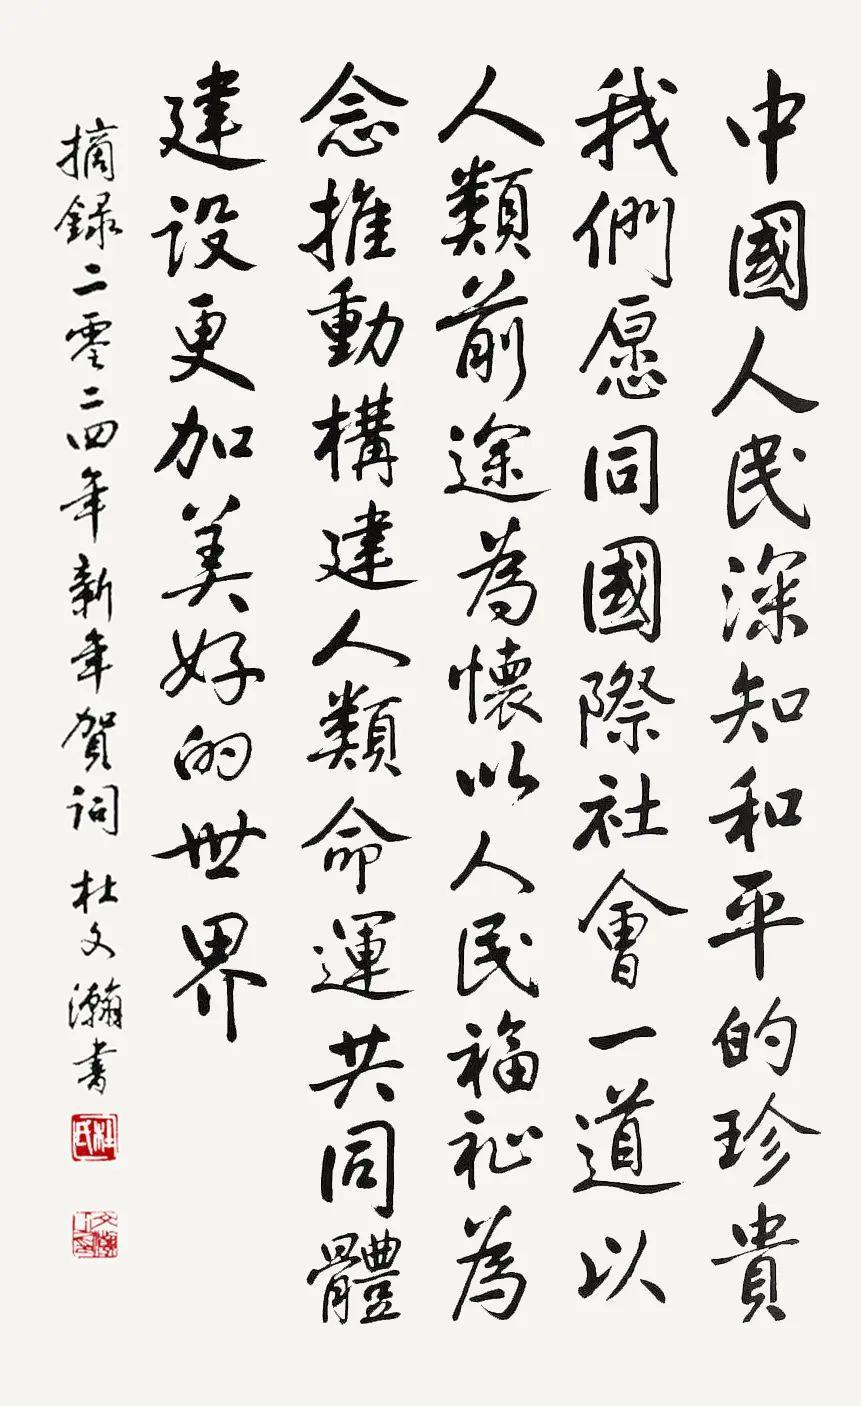 中國人民深知和平的珍貴
我們愿同國際社會一道以
人類前途為懷以人民福祉為
念推動構建人類命運共同體
建设更加美好的世界
摘録二零二四年新年賀词 杜文瀚書
杜氏